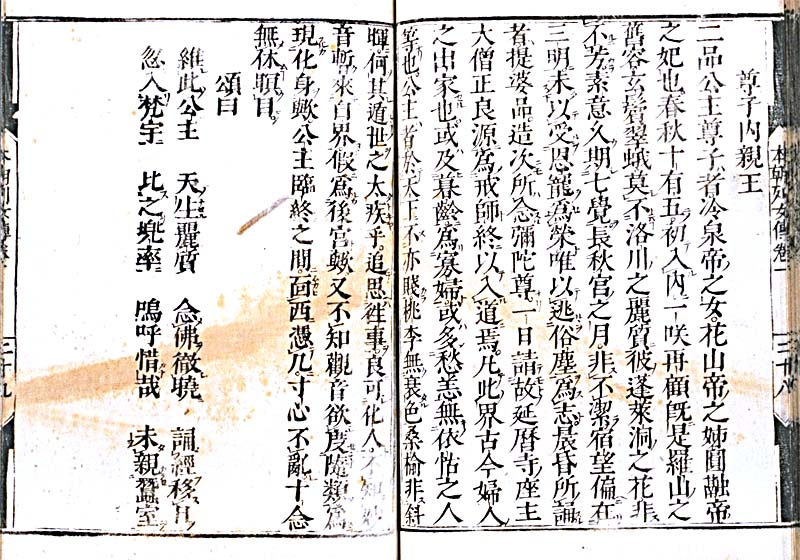 尊子内親王
二品公主尊子者冷泉帝之女花山帝之姉圓融帝
之妃也春秋十有五初入内一咲再顧既是羅山之
舊容玄鬢翠蛾莫不洛川之麗質彼蓬萊洞之花非
不芳素意久期七覺長秋宮之月非不潔宿望偏在
三明未以受恩寵爲榮唯以逃俗塵爲志晨昏所誦
者提婆品造次所念彌陀尊一日請故延暦寺座主
大僧正良源爲戒師終以入道焉凡此界古今婦人
之出家也或及暮齡爲寡婦或多愁恙無依怙之人
等也公主者於大王不亦賤桃李無衰色桑楡非斜
暉何其遁世之太疾乎追思往事良可化人不知
音暫來自界假爲後宮歟又不知觀音欲度隨類爲
現化身歟公主臨終之間面西憑几寸心不亂十念
無休瞑目
頌曰
維此公主 天生麗質 念佛徹曉 誦經移日
忽入梵宇 比之兜率 嗚呼惜哉 未親蠶室
本朝列女傳卷一
三十八
三十九